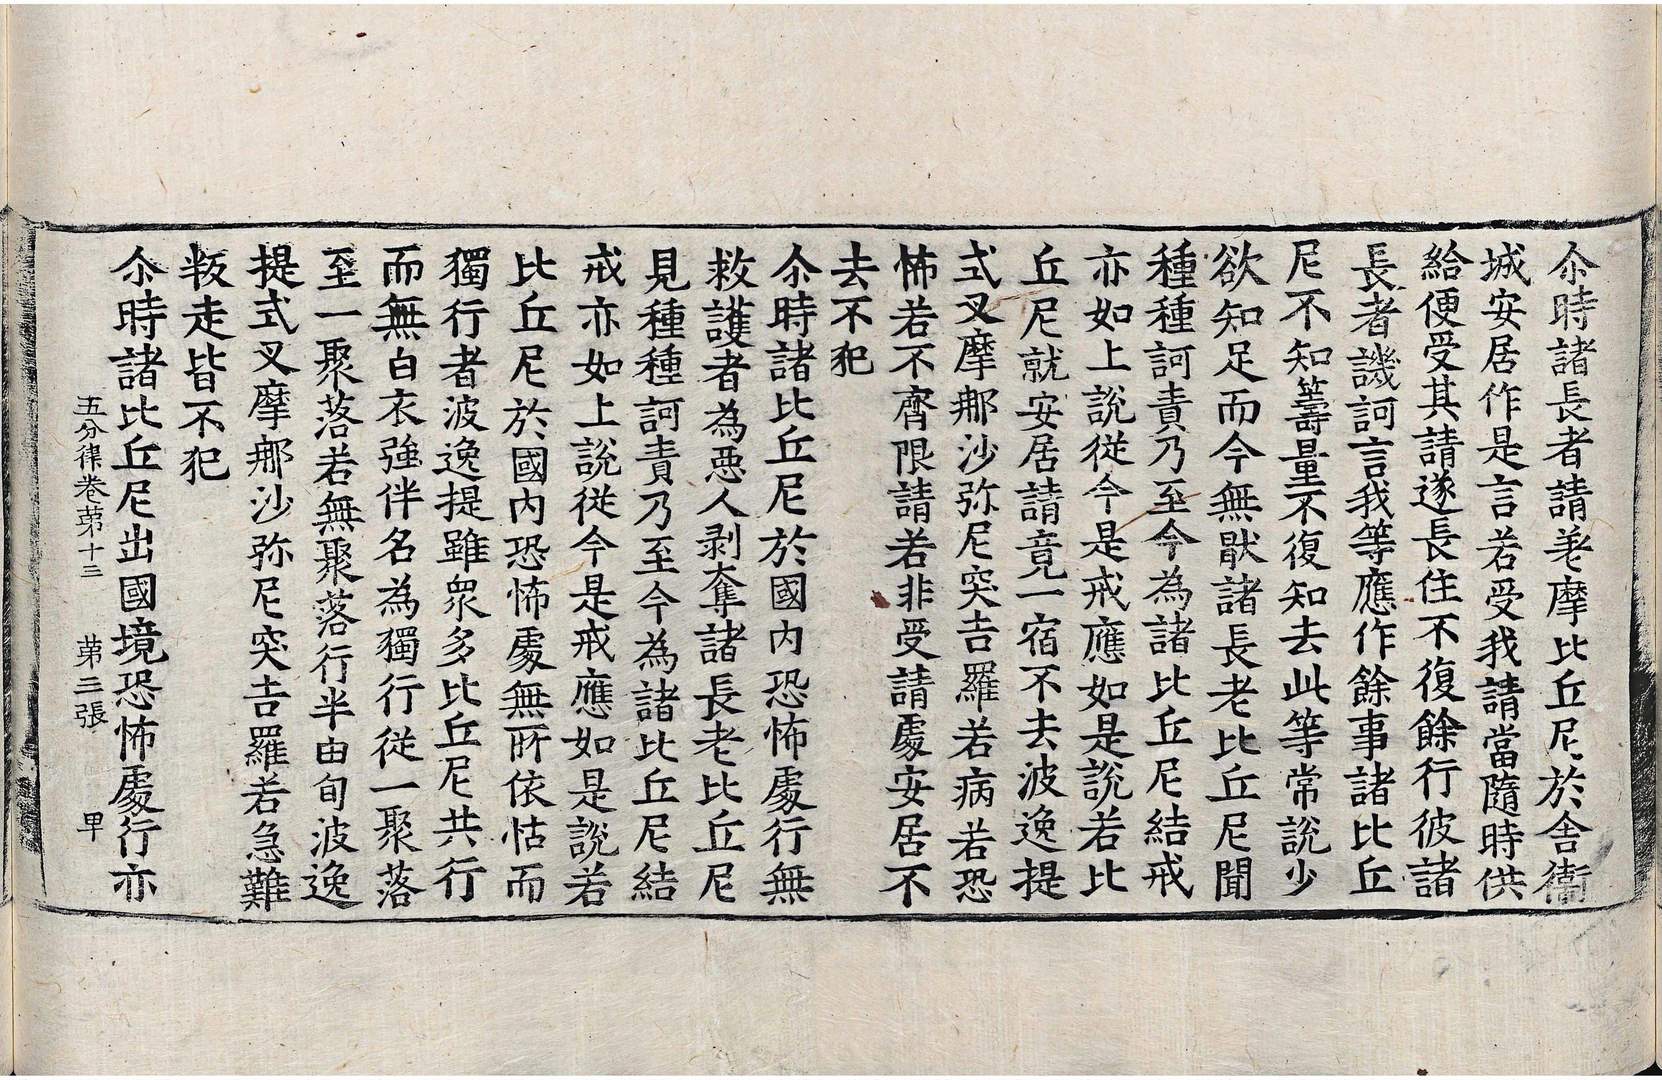 尒時諸長者請差摩比丘尼於舍衛
城安居作是言若受我請當隨時供
給便受其請遂長住不復餘行彼諸
長者譏訶言我等應作餘事諸比丘
尼不知籌量不復知去此等常說少
欲知足而今無猒諸長老比丘尼聞
種種訶責乃至今為諸比丘尼結戒
亦如上說從今是戒應如是說若比
丘尼就安居請竟一宿不去波逸提
式叉摩那沙弥尼突吉羅若病若恐
怖若不齊限請若非受請處安居不
去不犯
尒時諸比丘尼於國內恐怖處行無
救護者為惡人剥奪諸長老比丘尼
見種種訶責乃至今為諸比丘尼結
戒亦如上說從今是戒應如是說若
比丘尼於國內恐怖處無所依怙而
獨行者波逸提雖眾多比丘尼共行
而無白衣強伴名為獨行從一聚落
至一聚落若無聚落行半由旬波逸
提式叉摩那沙弥尼突吉羅若急難
叛走皆不犯
五分律卷苐十三 苐三張 甲
尒時諸比丘尼出國境恐怖處行亦